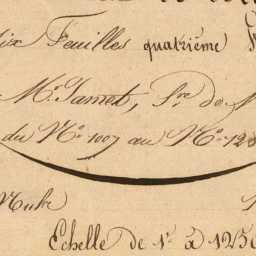 ix Feuilles quatrième
Mr. Jamet, Gre. de
du No. 1007 au No. 12
Echelle de 1. à 1250